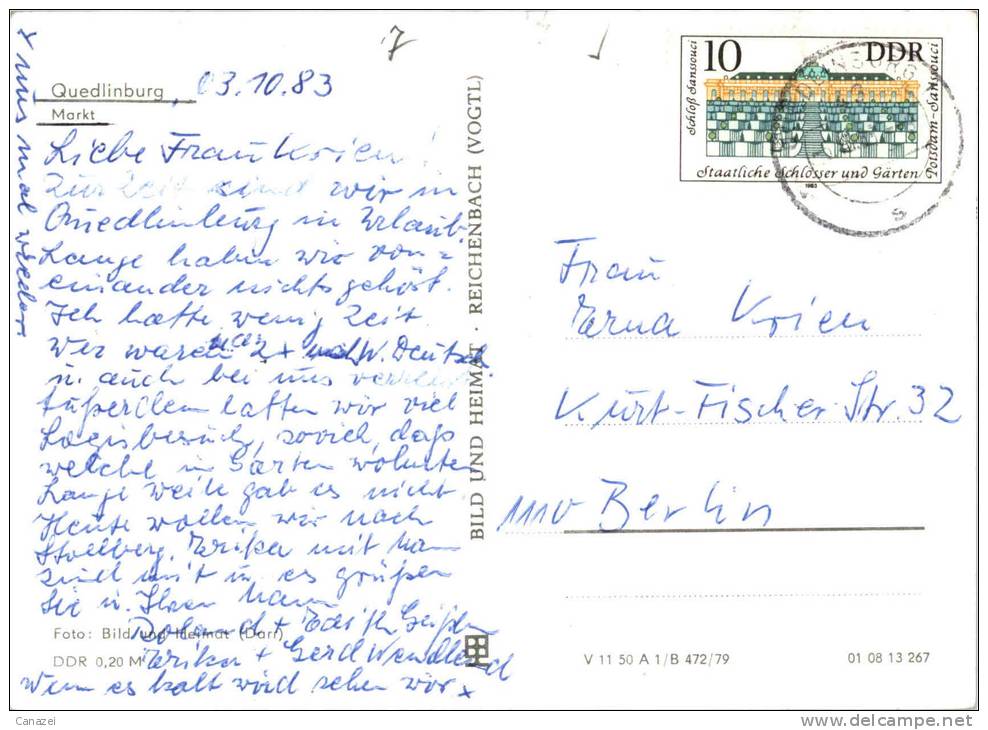 7
Quedlinburg, 03.10.83
Markt
Liebe Frau Krien!
Zur Zeit sind wir in
Quedlinburg in Urlaub.
Lange haben wir von=
einander nichts gehört.
Ich hatte wenig Zeit
wir waren 2x nach W. Deutschl.
u. auch bei uns verreist
Außerdem hatten wir viel
Logisbesuch, soviel, daß
welche im Garten wohnten
Lange weile gab es nicht.
Heute wollen wir nach
Stollberg. Erika mit Mann
sind mit u. es grüßen
Sie u. Ihren Mann
Roland + Edith
Erika + Gerd Wendland
Wenn es kalt wird sehen wir x
x uns mal wieder
Foto: Bild und Heimat (Darr)
DDR 0,20 M
BILD UND HEIMAT · REICHENBACH (VOGTL)
10 DDR
Schloß Sanssouci
Potsdam-Sanssouci
Staatliche Schlösser und Gärten
1983
QUEDLINBURG
s
Frau
Erna Krien
Kurt-Fischer-Str. 32
1110 Berlin
V 11 50 A 1/B 472/79
01 08 13 267
Canazei
www.delcampe.net